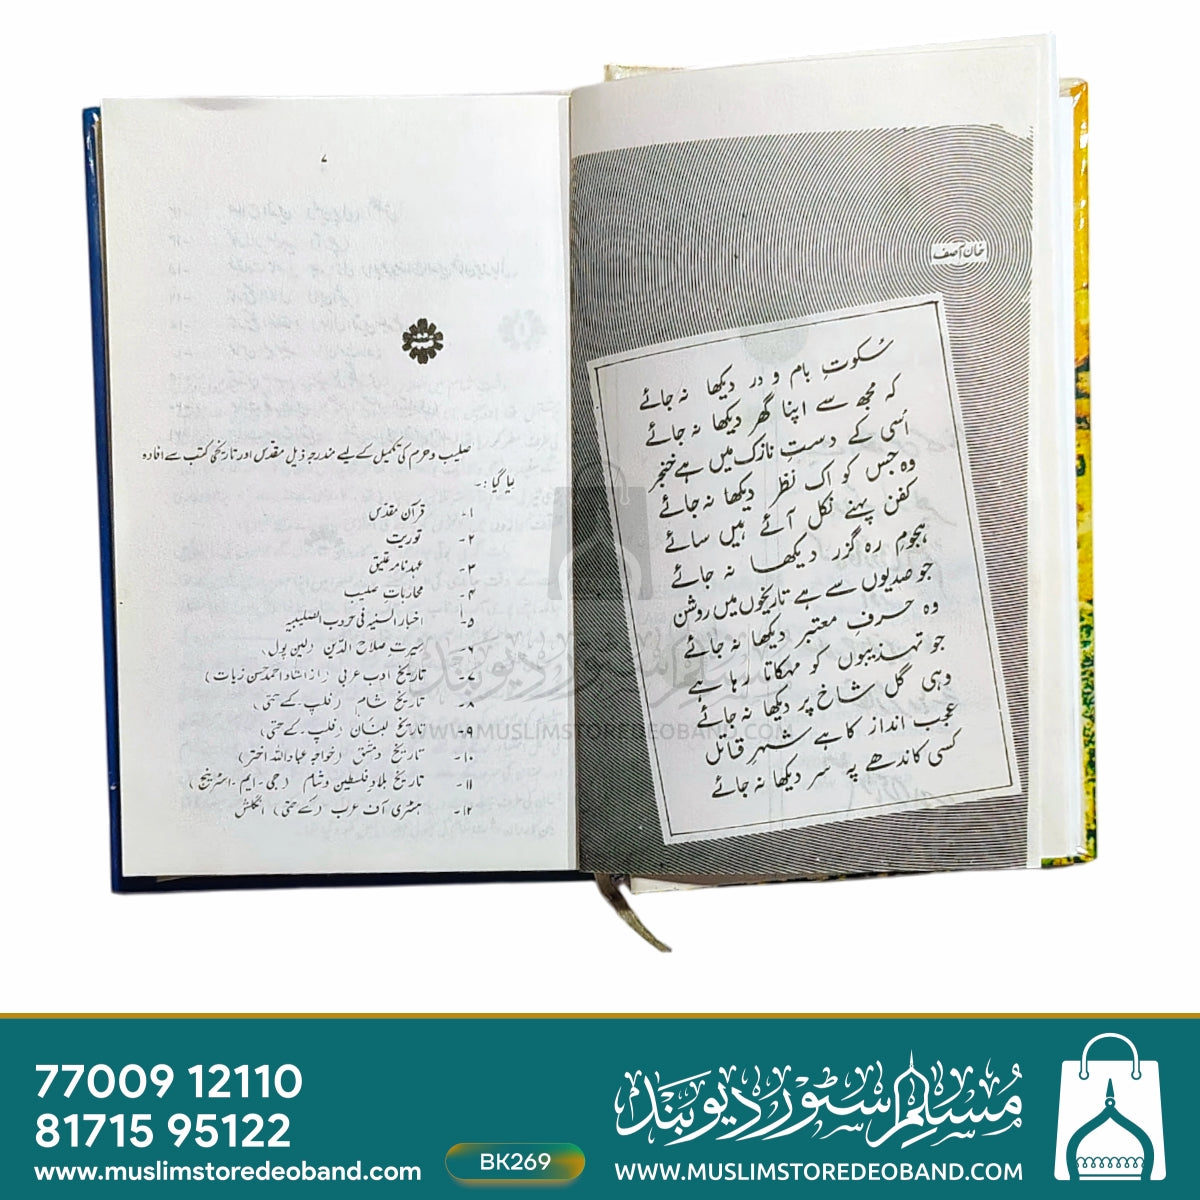 ۷
صلیب و حرم کی تکمیل کے لیے مندرجہ ذیل مقدس اور تاریخی کتب سے افادہ
کیا گیا :۔
۱۔ قرآن مقدس
۲۔ توریت
۳۔ عہد نامہ عتیق
۴۔ محاربات صلیب
۵۔ اخبار السنیہ فی حروب الصلیبیہ
۶۔ سیرت صلاح الدین (لین پول)
۷۔ تاریخ ادب عربی (از استاد احمد حسن زیات)
۸۔ تاریخ شام (فلپ کے حتی)
۹۔ تاریخ لبنان (فلپ۔کے حتی)
۱۰۔ تاریخ دمشق (خواجہ عباد اللہ اختر)
۱۱۔ تاریخ بلاد فلسطین و شام (جی۔ایم۔اسٹرینج)
۱۲۔ ہسٹری آف عرب (کے حتی) انگلش
خان آصف
سکوتِ بام و در دیکھا نہ جائے
کہ مجھ سے اپنا گھر دیکھا نہ جائے
اُسی کے دستِ نازک میں ہے خنجر
وہ جس کو اک نظر دیکھا نہ جائے
کفن پہنے نکل آئے ہیں سائے
ہجومِ رہ گزر دیکھا نہ جائے
جو صدیوں سے ہے تاریخوں میں روشن
وہ حرفِ معتبر دیکھا نہ جائے
جو تہذیبوں کو مہکاتا رہا ہے
وہی گل شاخ پر دیکھا نہ جائے
عجب انداز کا ہے شہرِ قاتل
کسی کاندھے پہ سر دیکھا نہ جائے
مسلم سٹور دیوبند
WWW.MUSLIMSTOREDEOBAND.COM
77009 12110
81715 95122
www.muslimstoredeoband.com
BK269
مسلم سٹور دیوبند
WWW.MUSLIMSTOREDEOBAND.COM